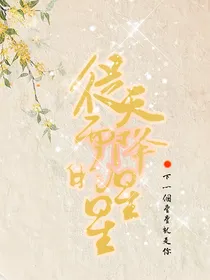 從天而降的星星
下一個就是你